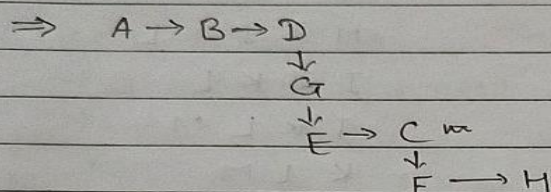 ⇒ A → B → D
↓
G
↓
E → C
↓
F → H